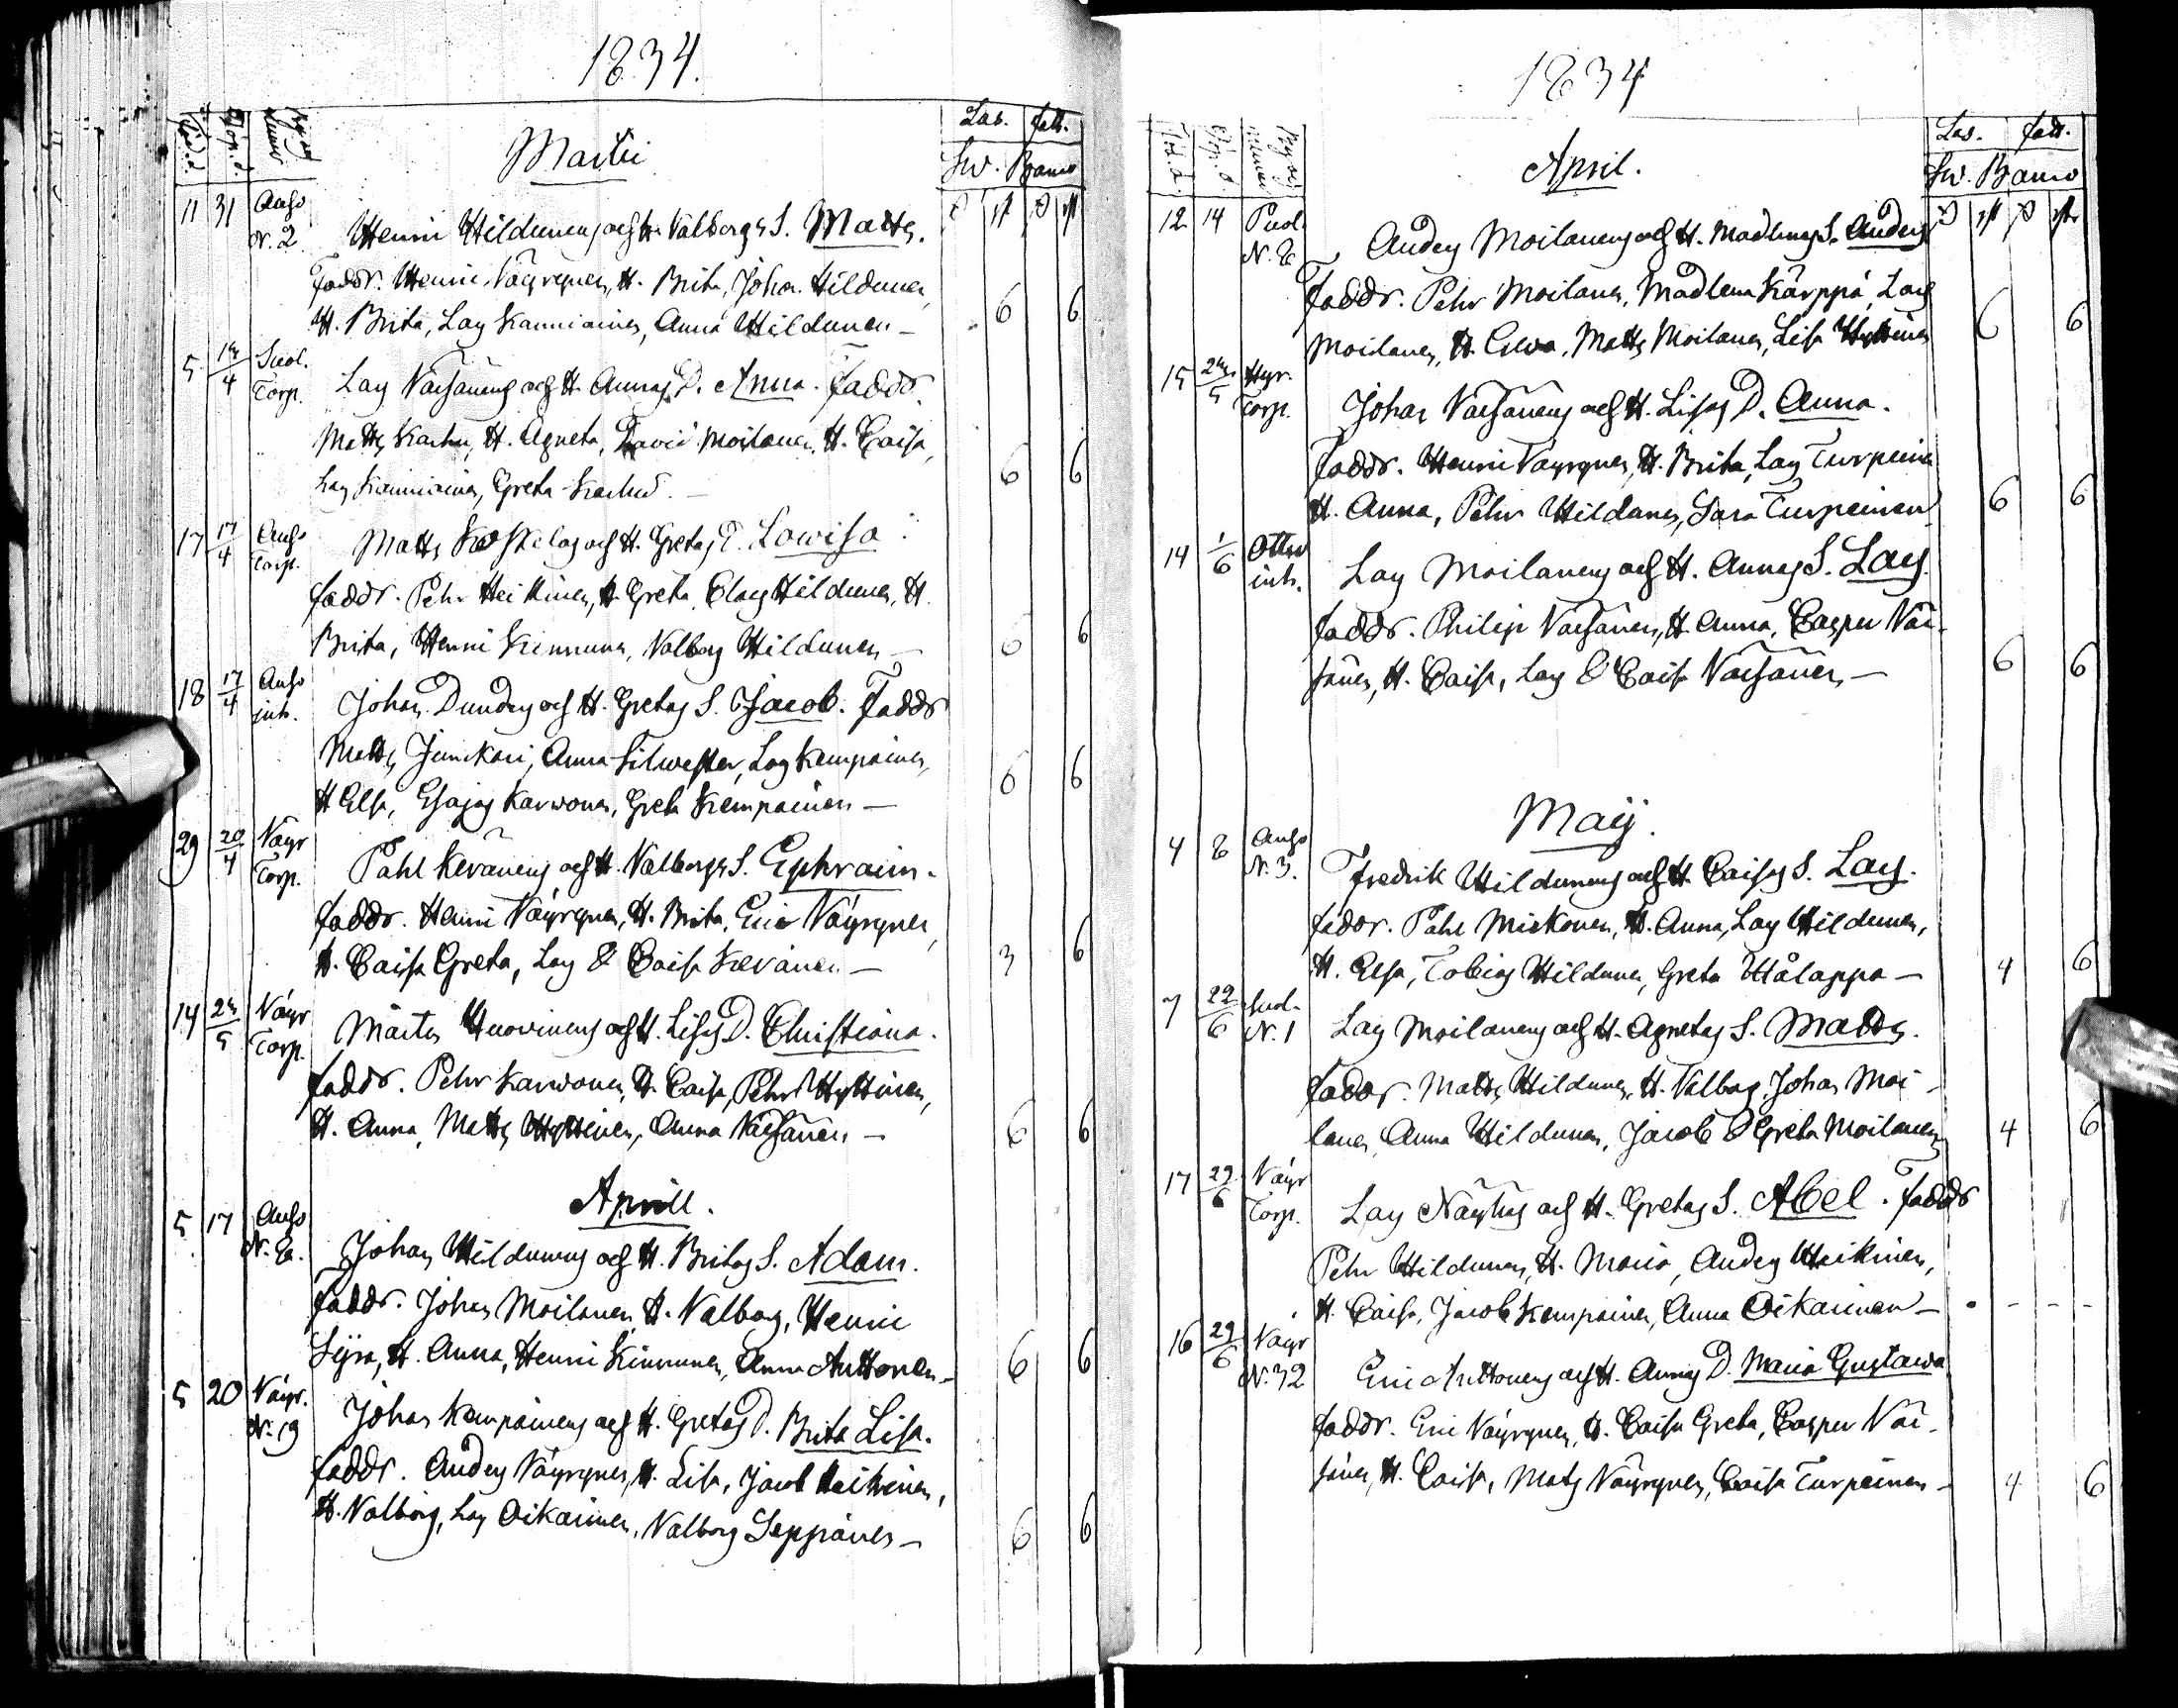 1834.
Föd. d. Döp. d. Byar Numer
Martii
Lås. fatt.
Sw. Banco
11 31 Anh⁰ N. 2 Henric Hildunens och H. Valborgs S. Matts.
Faddr. Henric Väyrynen, H. Brita, Johan Hildunen,
H. Brita, Lars Kanniainen, Anna Hildunen — 6 6
5 14/4 Suol. Torp. Lars Väisänens och H. Annas D. Anna. Faddr.
Matts Karhu, H. Agneta, David Moilanen, H. Caisa,
Lars Kanniainen, Greta Karhu. — 6 6
17 17/4 Torp. Matts Koskelas och H. Gretas D. Lowisa.
faddr. Pehr Heikkinen, H. Greta, Clas Hildunen, H.
Brita, Henric Kinnunen, Valborg Hildunen — 6 6
18 17/4 inh. Johan Dunders och H. Gretas S. Jacob. Faddr
Matts Junkari, Anna Silwester, Lars Kempainen,
H Elsa, Esajas Karwonen, Greta Kempainen — 6 6
29 20/4 Väyr Torp. Påhl Keränens och H. Valborgs S. Ephraim.
faddr. Henric Väyrynen, H. Brita, Eric Väyrynen,
H. Caisa Greta, Lars & Caisa Keränen — 3 6
14 24/5 Väyr Torp. Mårten Huovinens och H. Lisas D. Christiana.
faddr. Pehr Karwonen, H. Caisa, Pehr Hyttinen,
H. Anna, Matts Hyttinen, Anna Väisänen — 6 6
Aprill.
5 17 N. 8. Johan Hildunens och H. Britas S. Adam.
faddr. Johan Moilanen H. Valborg, Henric
Syra, H. Anna, Henric Kinnunen, Anna Anttonen — 6 6
5 20 Väyr. N. 19 Johan Kempainens och H. Gretas D. Brita Lisa.
faddr. Anders Väyrynen, H. Lisa, Jacob Heikinen,
H. Valborg, Lars Oikarinen, Valborg Seppänen — 6 6
1834
Föd. d. Döp. d. Byar Numer
April.
Lås. fatt.
Sw. Banco
12 14 N. 8 Anders Moilanens och H. Madlenas S. Anders
Faddr. Pehr Moilanen, Madlena Kärppä, Lars
Moilanen, H. Ewa, Matts Moilanen, Lisa Hyttinen 6 6
15 24/5 Hyr. Torp. Johan Väisänens och H. Lisas D. Anna.
faddr. Henric Väyrynen, H. Brita, Lars Turpeinen
H. Anna, Pehr Hildunen, Sara Turpeinen 6 6
14 1/6 inh. Lars Moilanens och H. Annas S. Lars.
faddr. Philip Väisänen, H. Anna, Casper Väi-
sänen, H. Caisa, Lars & Caisa Väisänen — 6 6
Maij.
4 8 N. 3. Fredrik Hildunens och H. Caisas S. Lars.
faddr. Påhl Mickonen, H. Anna, Lars Hildunen,
H. Elsa, Tobias Hildunen, Greta Hålappa — 4 6
7 22/6 Suol. N. 1 Lars Moilanens och H. Agnetas S. Matts.
faddr. Matts Hildunen, H. Valborg, Johan Moi-
lanen, Anna Hildunen, Jacob & Greta Moilanen 4 6
17 29/6 Väyr Torp. Lars Näythys och H. Gretas S. Abel. Faddr
Pehr Hildunen, H. Maria, Anders Heikinen,
H. Caisa, Jacob Kempainen, Anna Oikarinen — - - - -
16 29/6 Väyr N. 32 Eric Anttonens och H. Annas D. Maria Gustawa
faddr. Eric Väyrynen, H. Caisa Greta, Casper Väi-
sänen, H. Caisa, Mats Väyrynen, Caisa Turpeinen — 4 6